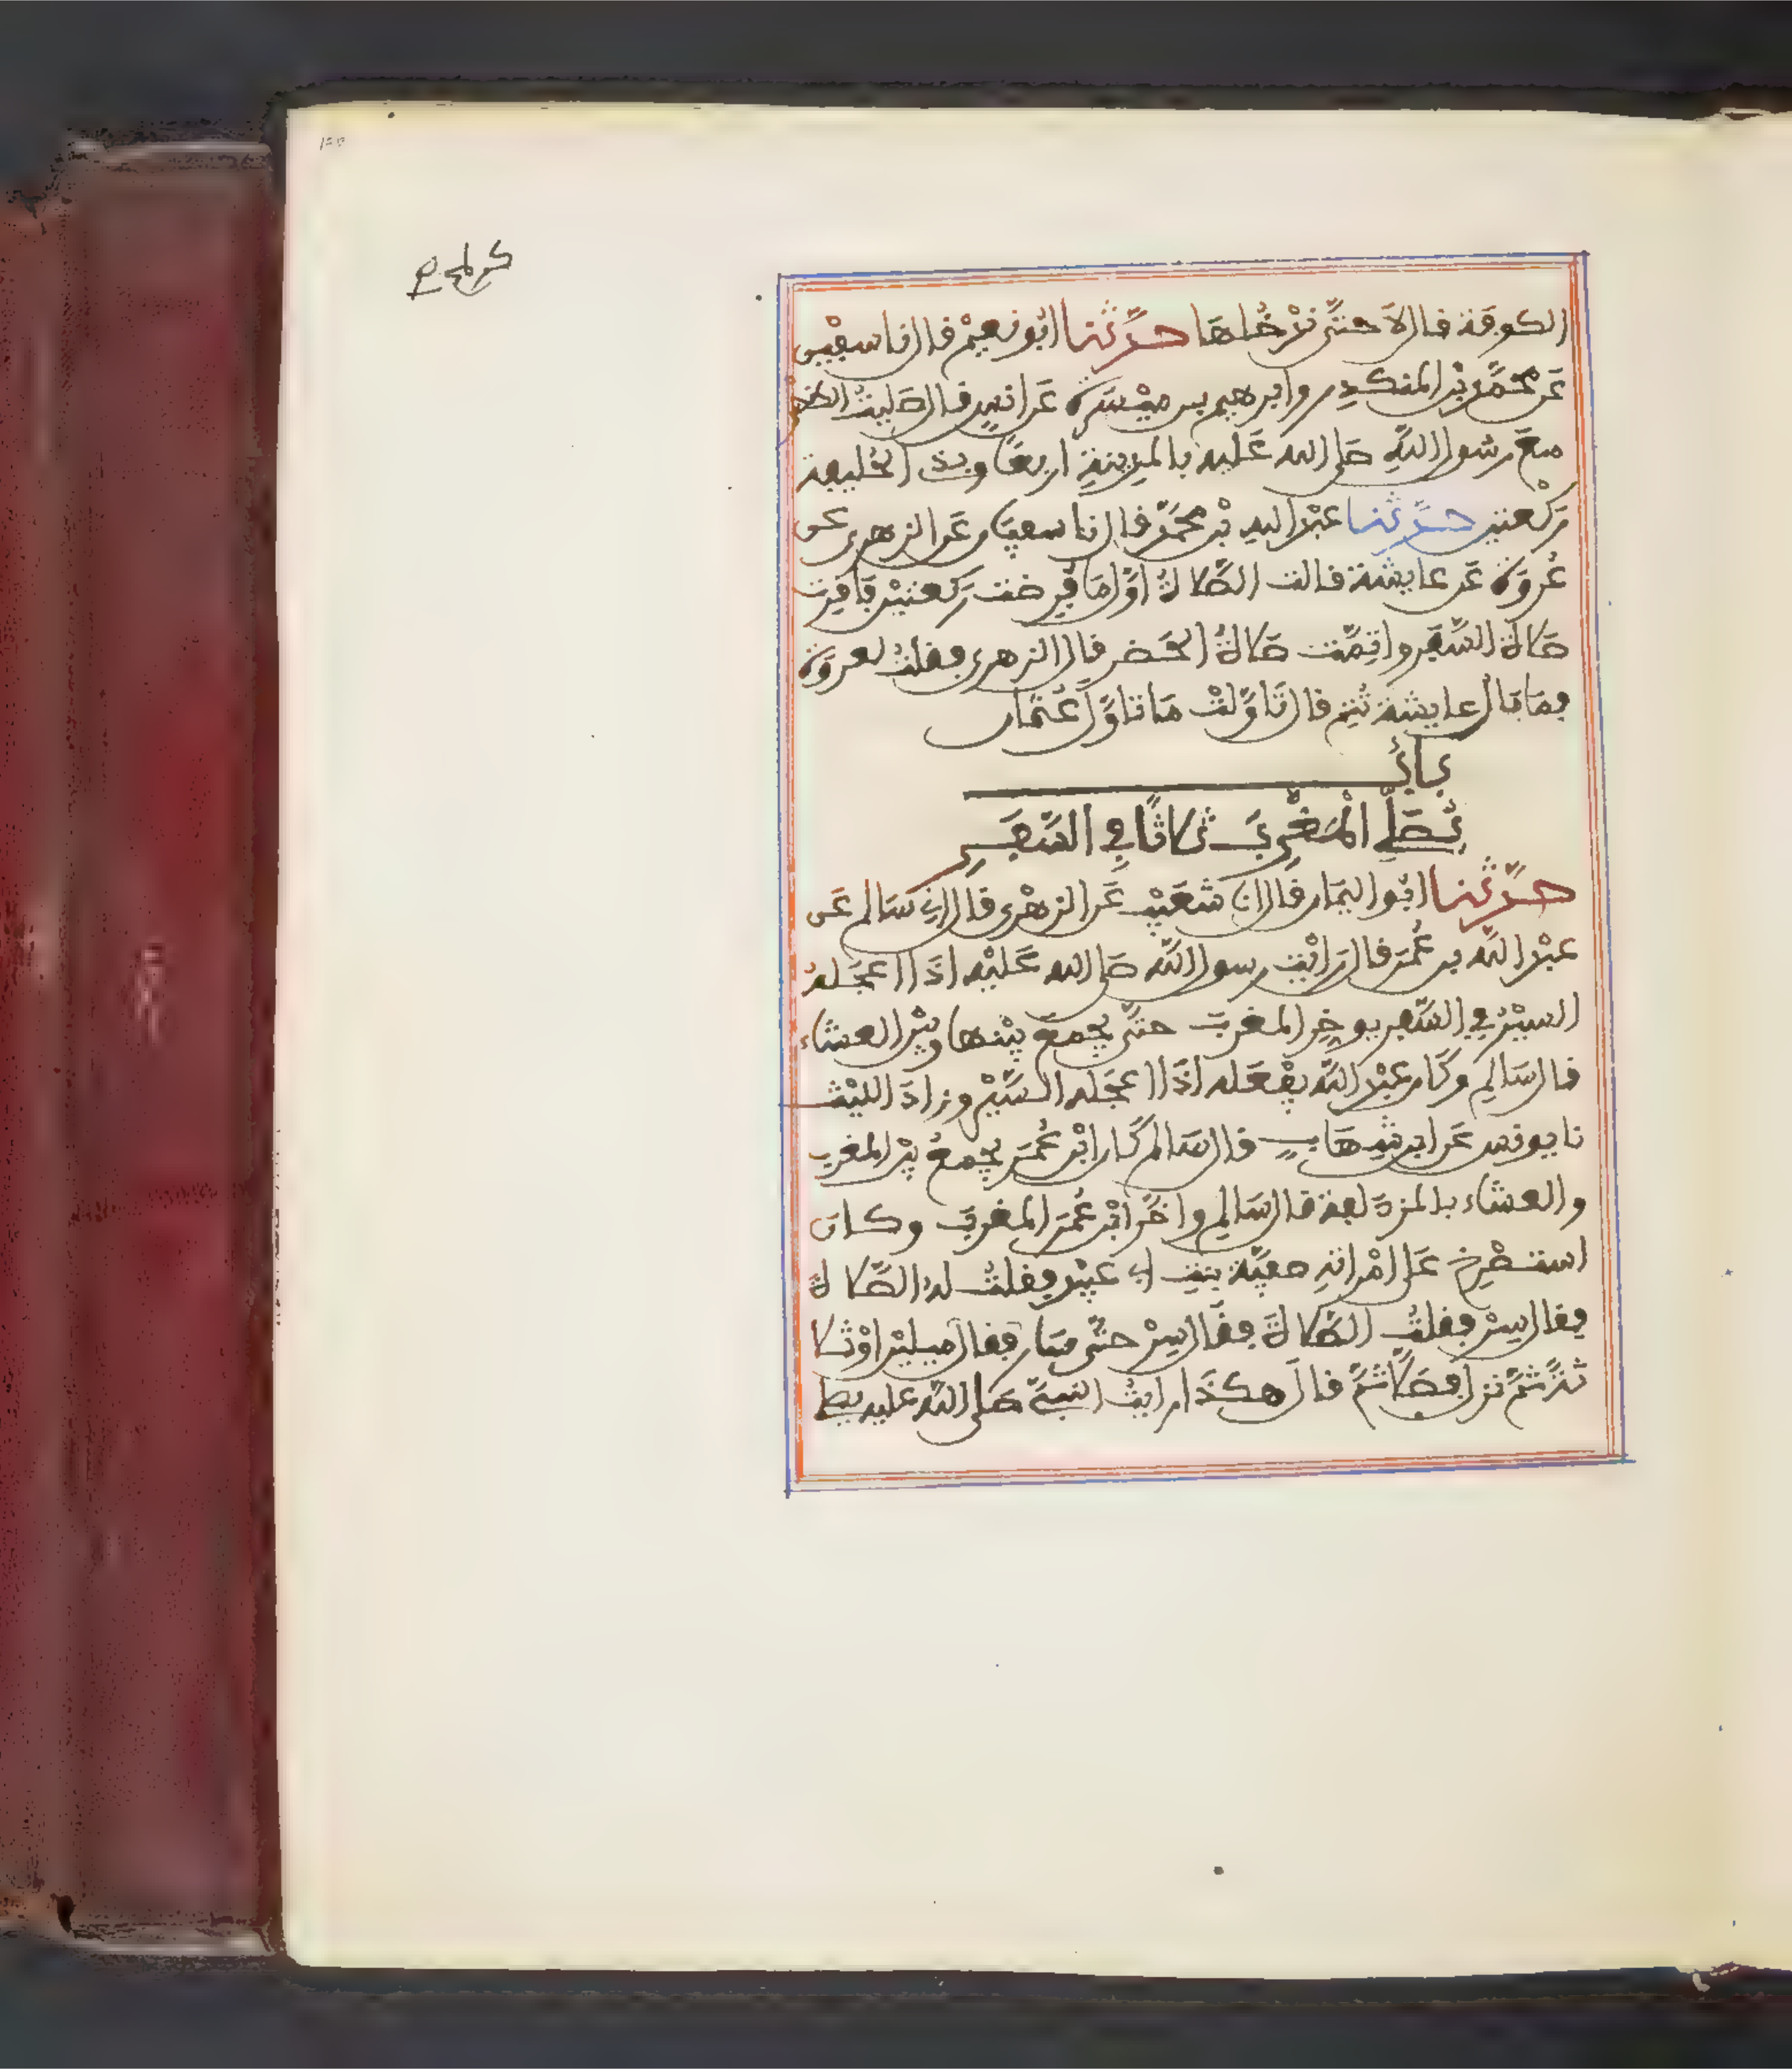 كراسة
الكوفة قال لا حتى ندخلها حدثنا ابو نعيم قال نا سفين
عن محمد بن المنكدر وابرهيم بن ميسرة عن انس قال صليت الظهر
مع رسول الله صلى الله عليه بالمدينة اربعا وبذي الحليفة
ركعتين حدثنا عبد الله بن محمد قال نا سفيان عن الزهري عن
عروة عن عايشة قالت الصلاة اول ما فرضت ركعتين فاقرت
صلاة السفر واتمت صلاة الحضر قال الزهري فقلت لعروة
فما بال عايشة تتم قال تاولت ما تاول عثمان
باب
يصلي المغرب ثلاثا في السفر
حدثنا ابو اليمان قال انا شعيب عن الزهري قال اني سالم عن
عبد الله بن عمر قال رايت رسول الله صلى الله عليه اذا اعجله
السير في السفر يوخر المغرب حتى يجمع بينها وبين العشاء
قال سالم وكان عبد الله يفعله اذا اعجله السير وزاد الليث
نا يونس عن ابن شهاب قال سالم كان ابن عمر يجمع بين المغرب
والعشاء بالمزدلفة قال سالم واخر ابن عمر المغرب وكان
استصرخ على امراته صفية بنت ابي عبيد فقلت له الصلاة
فقال سر فقلت الصلاة فقال سر حتى سار فقال ميلين او ثلا
ثة ثم نزل فصلا ثم قال هكذا رايت النبي صلى الله عليه يصلي